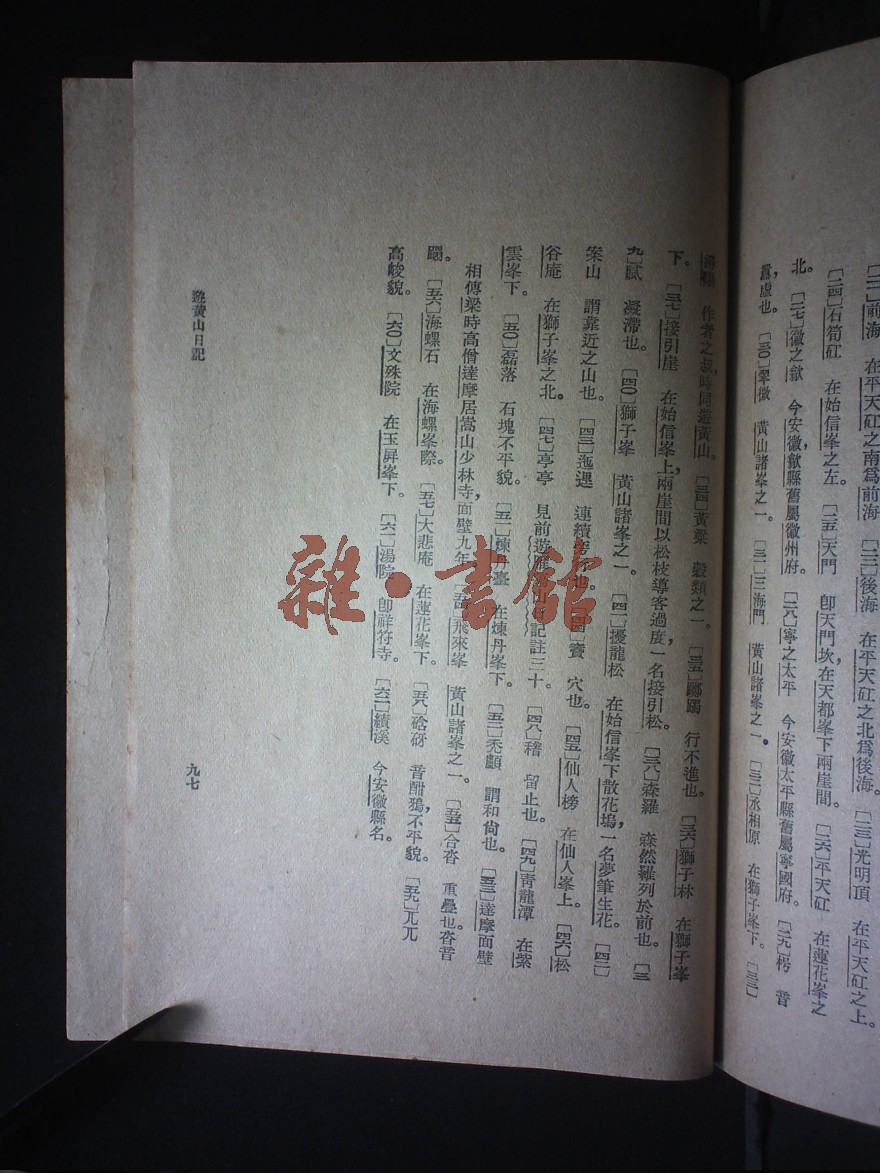 〔二一〕前海　在平天矼之南爲前海　〔二二〕後海　在平天矼之北爲後海。　〔二三〕光明頂　在平天矼之上。
〔二四〕石筍矼　在始信峯之左。　〔二五〕天門　卽天門坎在天都峯下兩崖間。　〔二六〕平天矼　在蓮花峯之
北。　〔二七〕徽之歙　今安徽歙縣舊屬徽州府。　〔二八〕寧之太平　今安徽太平縣舊屬寧國府。　〔二九〕枵　音
囂，虛也。　〔三〇〕翠微　黃山諸峯之一。　〔三一〕三海門　黃山諸峯之一。　〔三二〕丞相原　在獅子峯下。　〔三三〕
潯陽　作者之叔，時同遊黃山。　〔三四〕黃粱　穀類之一。　〔三五〕躑躅　行不進也。　〔三六〕獅子林　在獅子峯
下。　〔三七〕接引崖　在始信峯上，兩崖間以松枝導客過度，一名接引松。　〔三八〕森羅　森然羅列於前也。　〔三
九〕膩　凝滯也。　〔四〇〕獅子峯　黃山諸峯之一。　〔四一〕擾龍松　在始信峯下散花塢，一名夢筆生花。　〔四二〕
案山　謂靠近之山也。　〔四三〕迤邐　連續旁行也。　〔四四〕竇　穴也。　〔四五〕仙人榜　在仙人峯上。　〔四六〕松
谷庵　在獅子峯之北。　〔四七〕亭亭　見前遊雁宕山日記註三十。　〔四八〕稽　留止也。　〔四九〕靑龍潭　在紫
雲峯下。　〔五〇〕磊落　石塊不平貌。　〔五一〕煉丹臺　在煉丹峯下。　〔五二〕禿顱　謂和尙也。　〔五三〕達摩面壁
相傳梁時高僧達摩居嵩山少林寺，面壁九年。　〔五四〕飛來峯　黃山諸峯之一。　〔五五〕合沓　重疊也，沓音
蹋。　〔五六〕海螺石　在海螺峯際。　〔五七〕大悲庵　在蓮花峯下。　〔五八〕硆砑　音酣鴉，不平貌。　〔五九〕兀兀
高峻貌。　〔六〇〕文殊院　在玉屛峯下。　〔六一〕湯院　卽祥符寺。　〔六二〕績溪　今安徽縣名。
遊黃山日記
九七
雜·書館